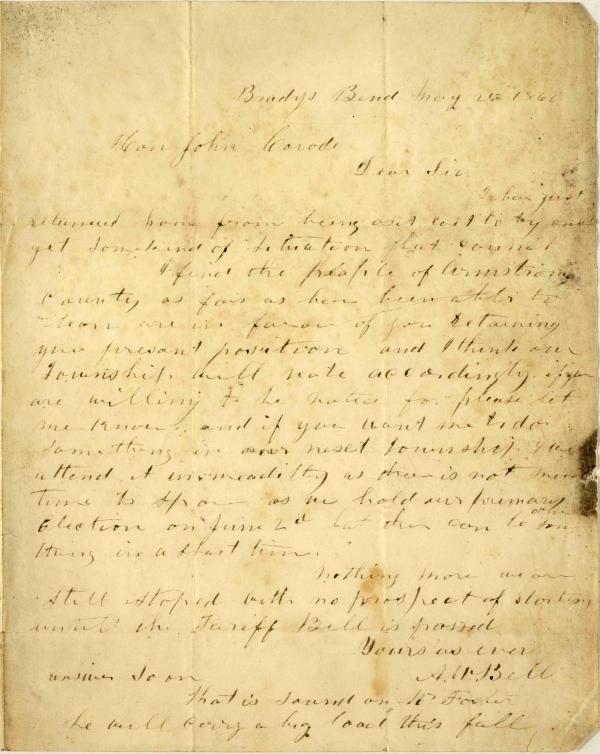 Bradys Bend May 25 1860
Hon John Covode
Dear Sir
I have just
returned home from being out East to try and
get some kind of situation but cannot
I find the people of Armstrong
County as far as have been able to
learn are in favor of you retaining
your present position and I think our
Township will vote accordingly if you
are willing to be voted for please let
me know. and if you want me to do
something in our next Township I will
attend it immeadiltly as there is not much
time to spare as we hold our primary
Election on June 2d but there can be some
thing in a short time.
nothing more we are
still stoped with no prospect of starting
untill the Tariff Bill is passed
Yours as ever
answer soon A. W. Bell
That is sound on Mr Foster
he will carry a big load this fall